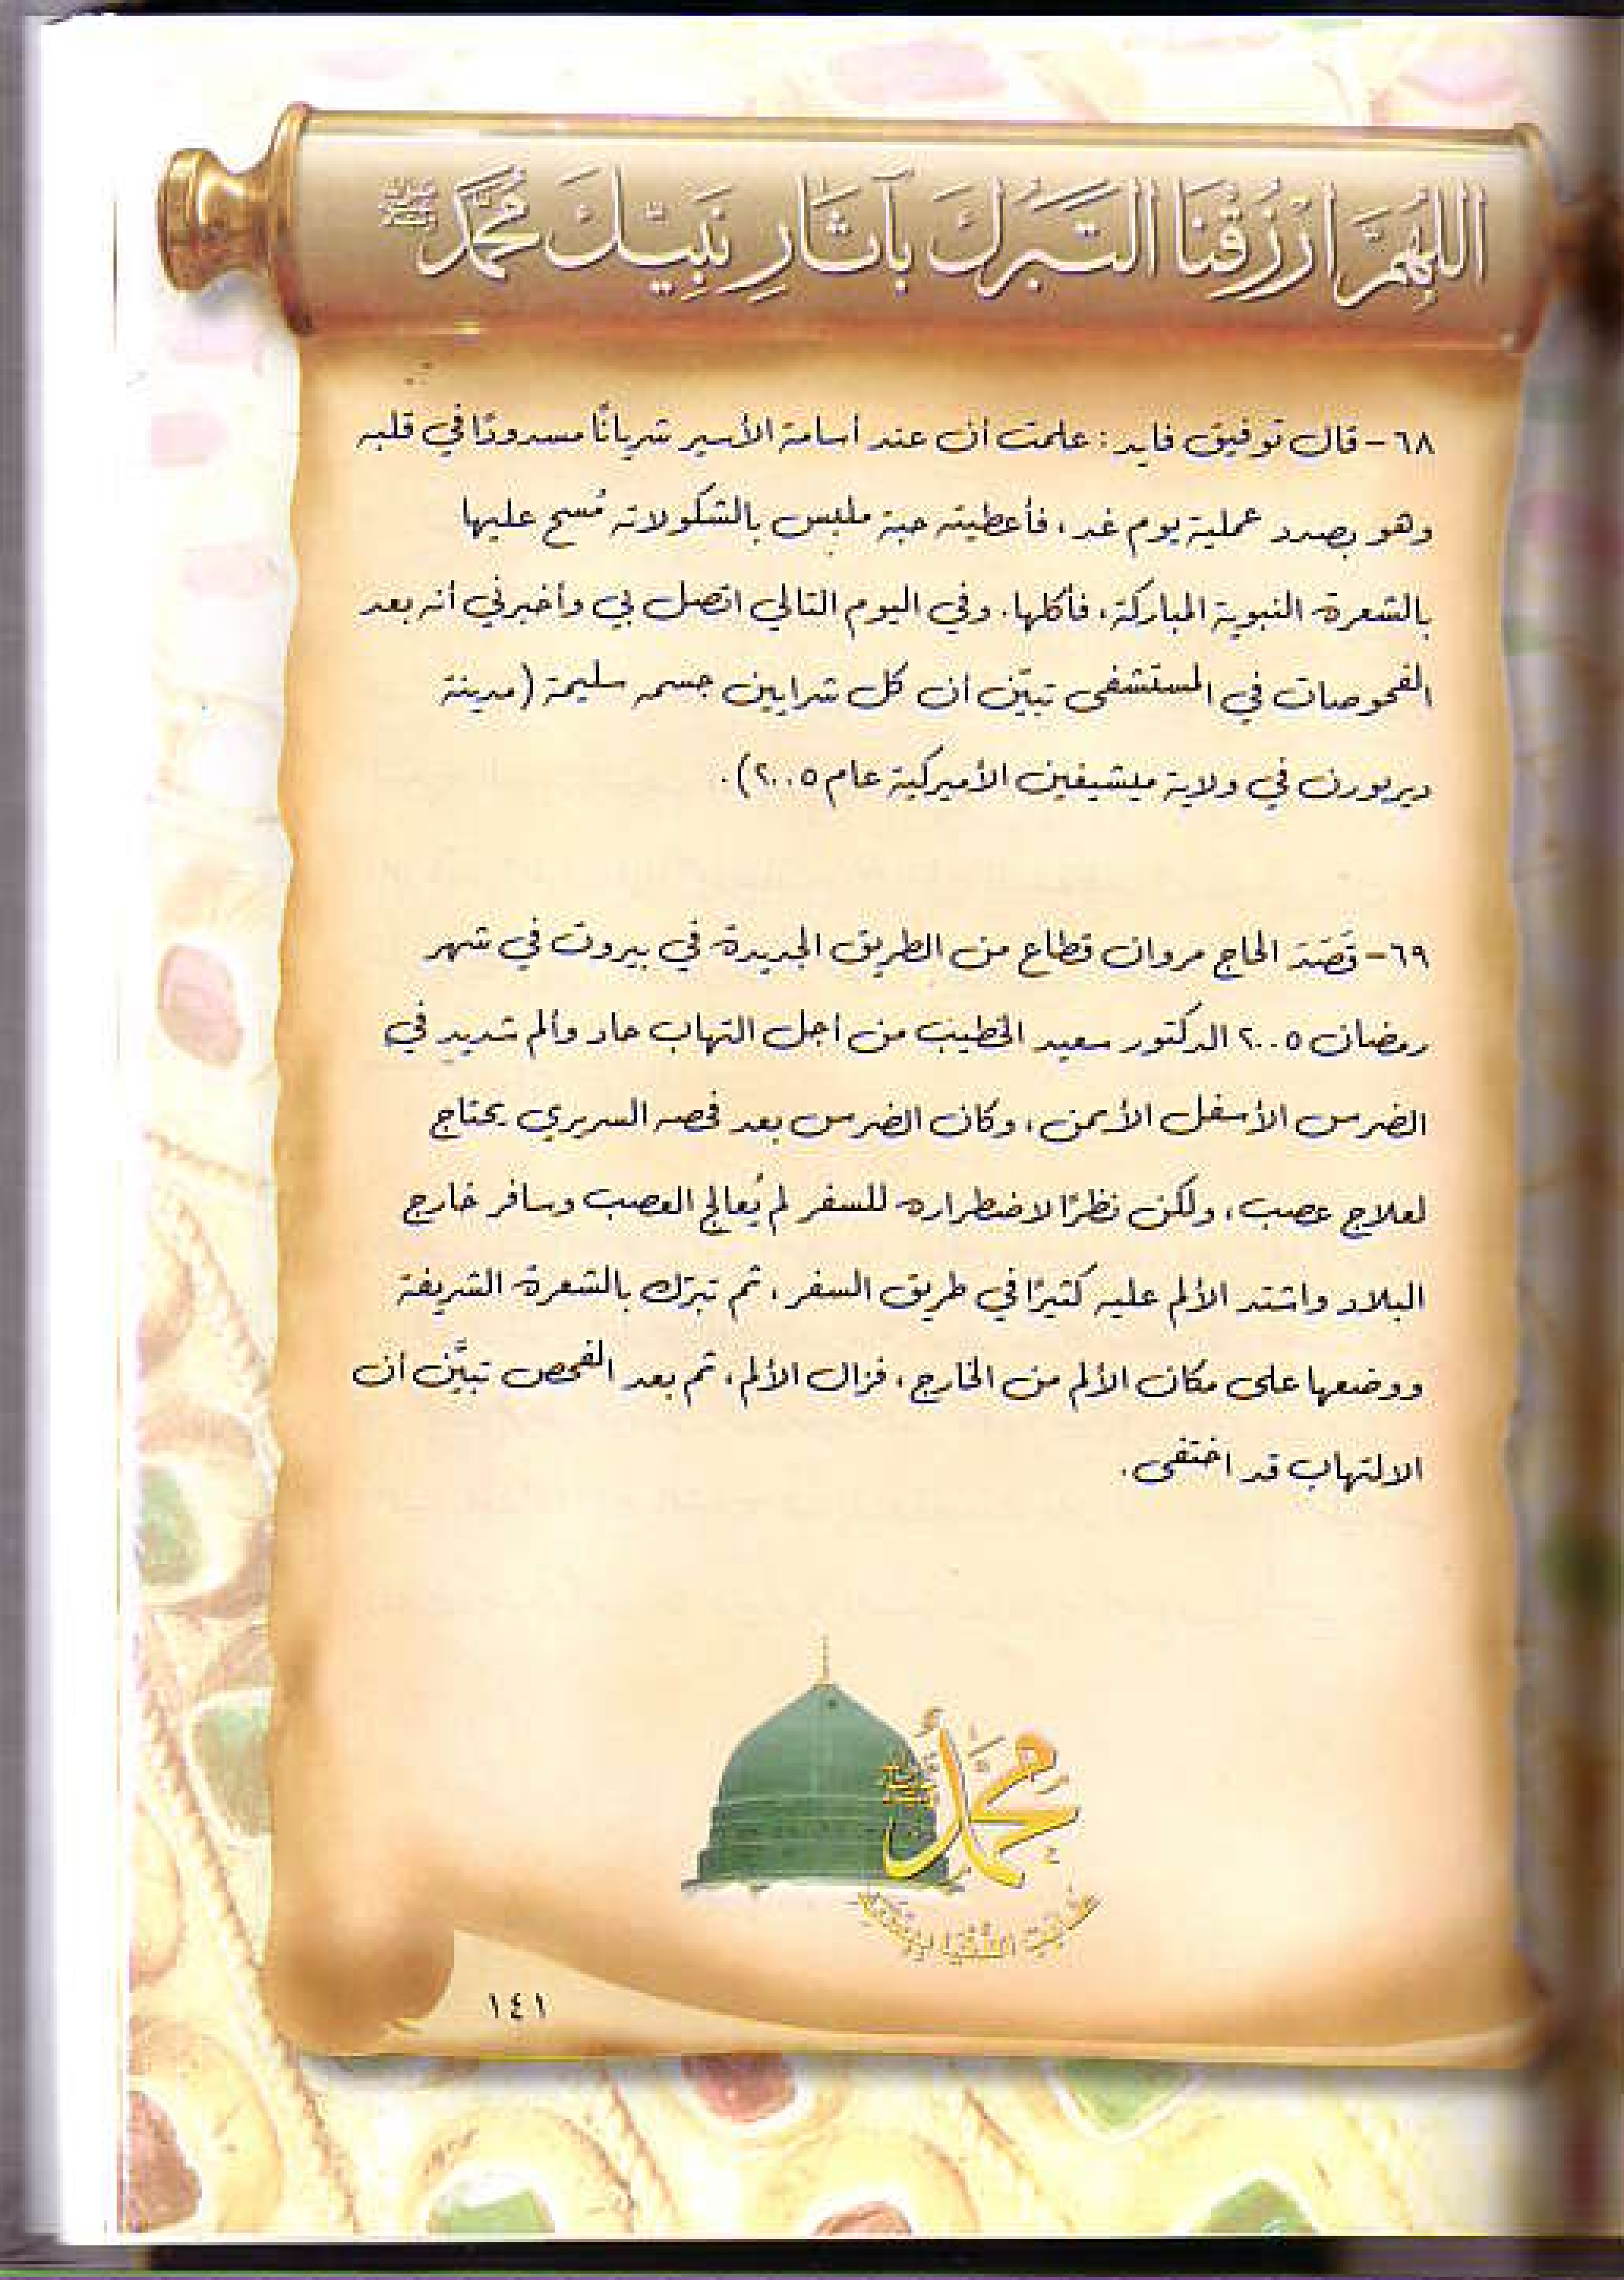 اللهُمَّ ارْزُقْنَا التَّبَرُّكَ بآثَارِ نَبِيِّكَ مُحَمَّدٍ ﷺ
٦٨- قال توفيق فايد: علمت أن عند أسامة الأسير شريانًا مسدودًا في قلبه
وهو بصدد عملية يوم غد، فأعطيته حبة ملبس بالشكولاته مُسح عليها
بالشعرة النبوية المباركة، فأكلها. وفي اليوم التالي اتصل بي وأخبرني أنه بعد
الفحوصات في المستشفى تبيّن أن كل شرايين جسمه سليمة (مدينة
ديربورن في ولاية ميشيغين الأميركية عام ٢٠٠٥).
٦٩- قَصَدَ الحاج مروان قطاع من الطريق الجديدة في بيروت في شهر
رمضان ٢٠٠٥ الدكتور سعيد الخطيب من أجل التهاب حاد وألم شديد في
الضرس الأسفل الأيمن، وكان الضرس بعد فحصه السريري يحتاج
لعلاج عصب، ولكن نظرًا لاضطراره للسفر لم يُعالج العصب وسافر خارج
البلاد واشتد الألم عليه كثيرًا في طريق السفر، ثم تبرّك بالشعرة الشريفة
ووضعها على مكان الألم من الخارج، فزال الألم، ثم بعد الفحص تبيَّن أن
الالتهاب قد اختفى.
مُحَمَّدٌ
١٤١